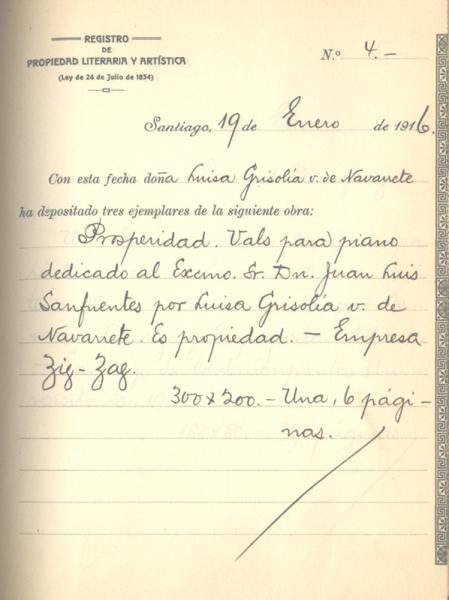 REGISTRO
DE
PROPIEDAD LITERARIA Y ARTÍSTICA
(Ley de 24 de Julio de 1834)
N.º 4.-
Santiago, 19 de Enero de 1916.
Con esta fecha doña Luisa Grisolía v. de Navarrete
ha depositado tres ejemplares de la siguiente obra:
Prosperidad. Vals para piano
dedicado al Excmo. Sr. Dn. Juan Luis
Sanfuentes por Luisa Grisolía v. de
Navarrete. Es propiedad. – Empresa
Zig-Zag.
300 x 200. – Una, 6 pági-
nas.